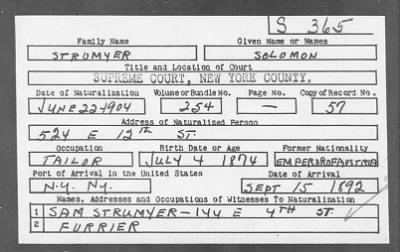 S 365
Family Name Given Name or Names
STRUMYER SOLOMON
Title and Location of Court
SUPREME COURT, NEW YORK COUNTY.
Date of Naturalization Volume or Bundle No. Page No. Copy of Record No.
JUNE 22-1904 254 — 57
Address of Naturalized Person
524 E 12TH ST.
Occupation Birth Date or Age Former Nationality
TAILOR JULY 4 1874 EMPEROROFAUSTRIA
Port of Arrival in the United States Date of Arrival
N.Y. NY. SEPT 15 1892
Names, Addresses and Occupations of Witnesses To Naturalization
1 SAM STRUMYER-144 E 4TH ST.
2 FURRIER